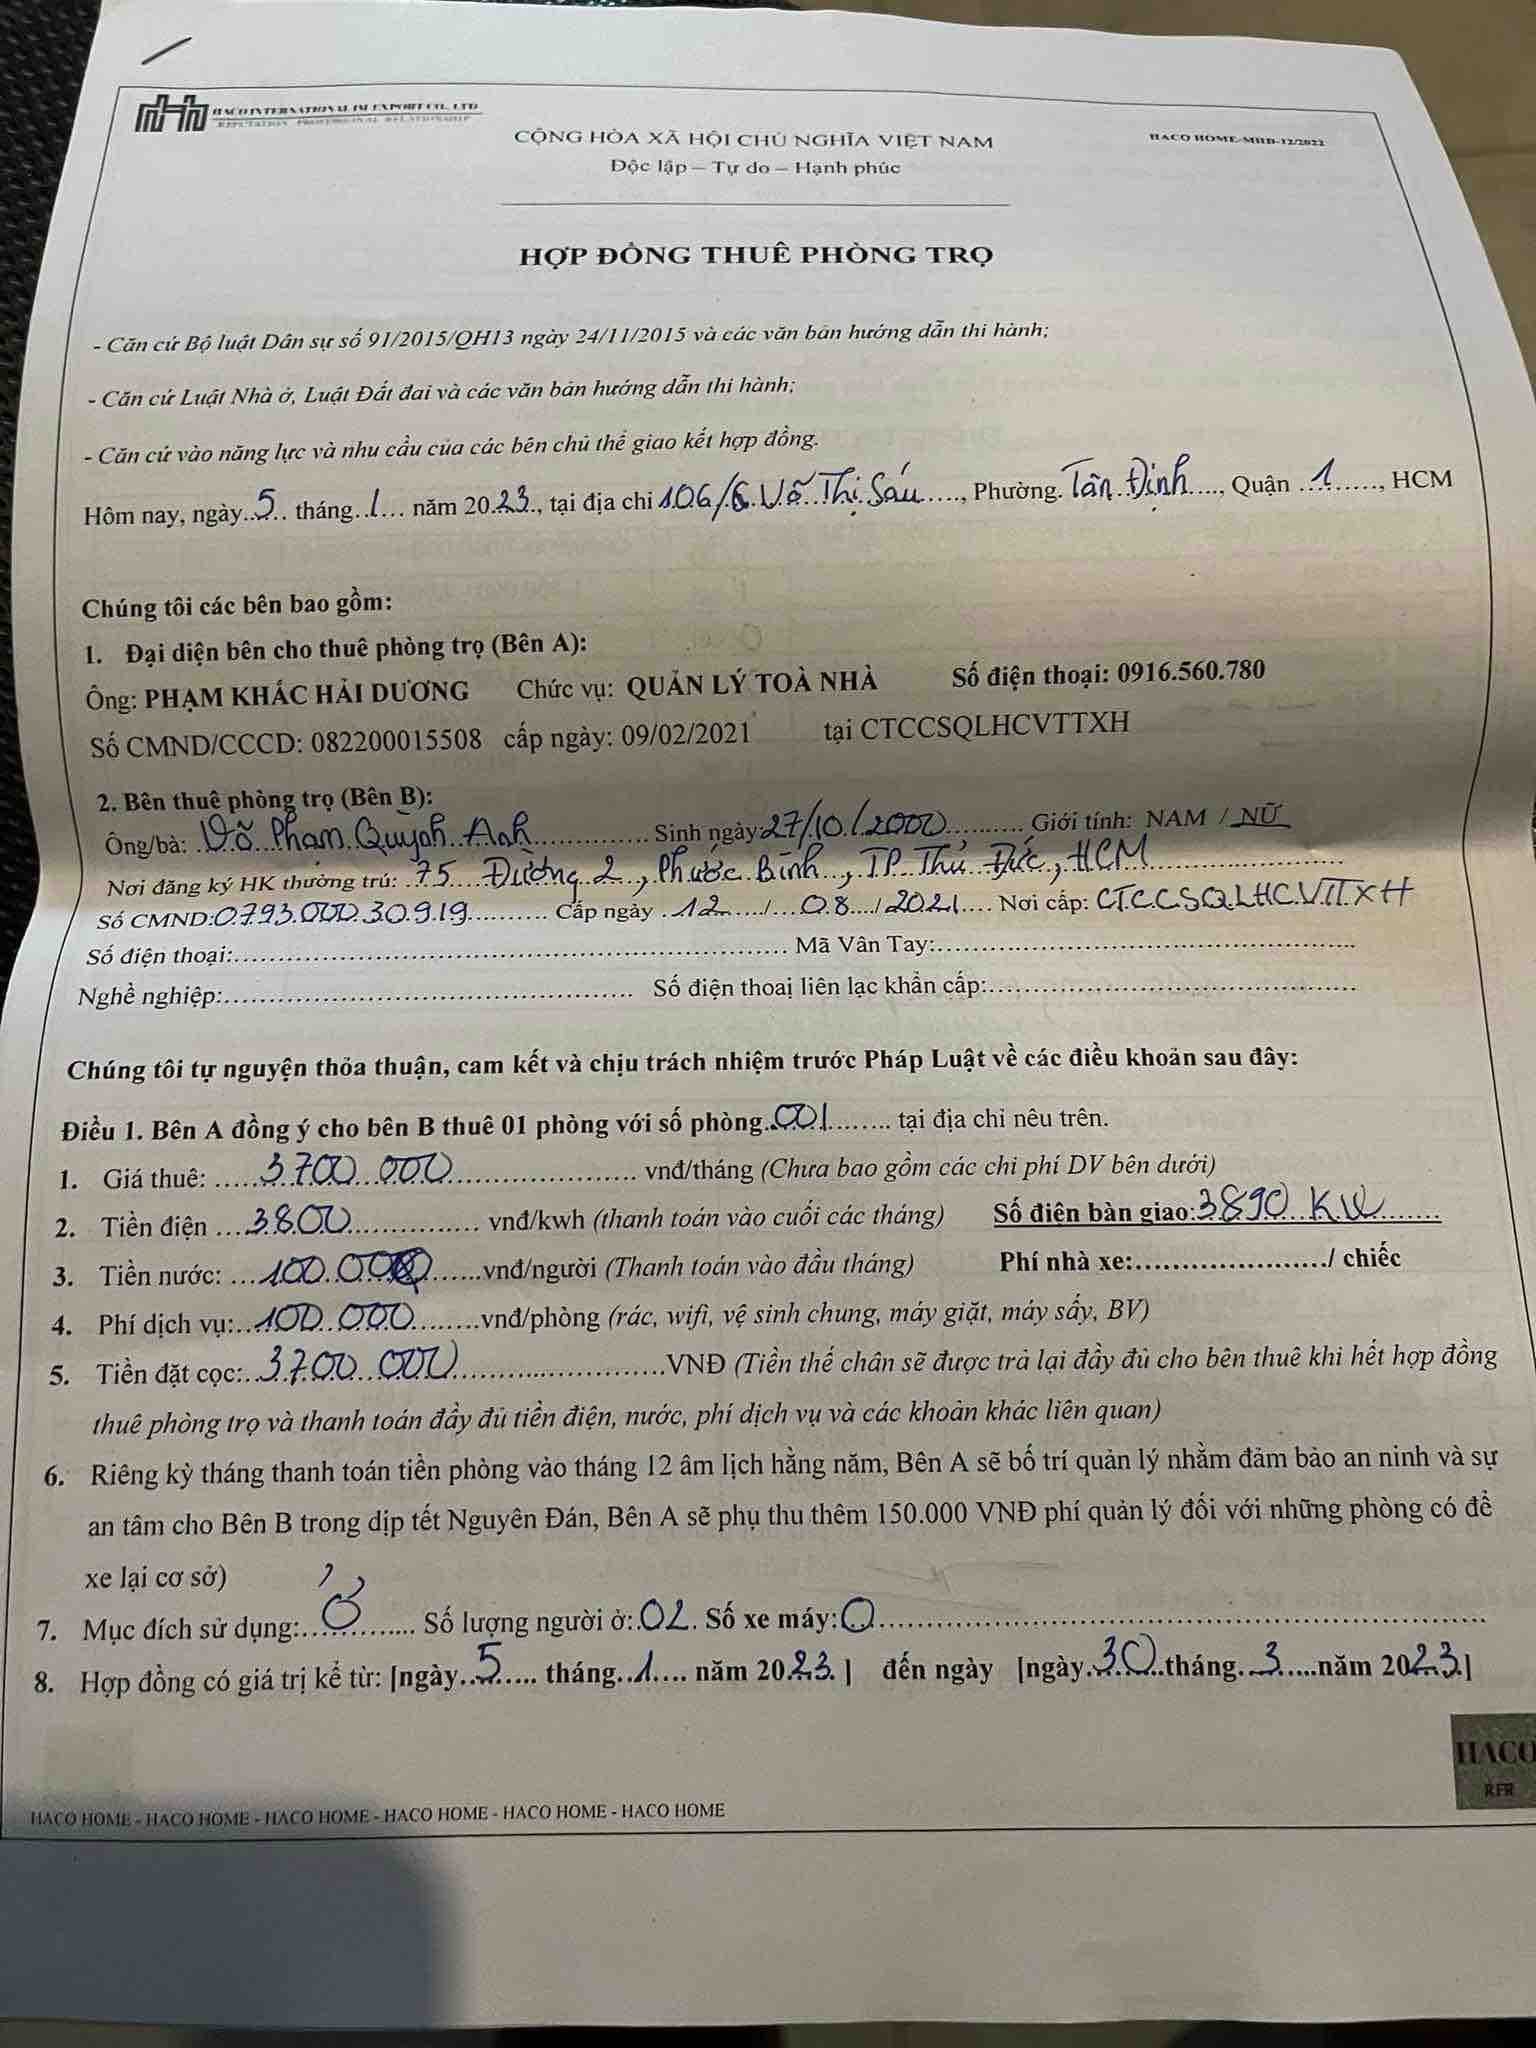 HACO INTERNATIONAL IM EXPORT CO., LTD
REPUTATION PROFESSIONAL RELATIONSHIP
CỘNG HÒA XÃ HỘI CHỦ NGHĨA VIỆT NAM
HACO HOME-MHD-12/2022
Độc lập – Tự do – Hạnh phúc
HỢP ĐỒNG THUÊ PHÒNG TRỌ
- Căn cứ Bộ luật Dân sự số 91/2015/QH13 ngày 24/11/2015 và các văn bản hướng dẫn thi hành;
- Căn cứ Luật Nhà ở, Luật Đất đai và các văn bản hướng dẫn thi hành;
- Căn cứ vào năng lực và nhu cầu của các bên chủ thể giao kết hợp đồng.
Hôm nay, ngày 5 tháng 1 năm 2023, tại địa chỉ 106/6 Võ Thị Sáu, Phường Tân Định, Quận 1, HCM
Chúng tôi các bên bao gồm:
1. Đại diện bên cho thuê phòng trọ (Bên A):
Ông: PHẠM KHẮC HẢI DƯƠNG Chức vụ: QUẢN LÝ TOÀ NHÀ Số điện thoại: 0916.560.780
Số CMND/CCCD: 082200015508 cấp ngày: 09/02/2021 tại CTCCSQLHCVTTXH
2. Bên thuê phòng trọ (Bên B):
Ông/bà: Võ Phạm Quỳnh Anh Sinh ngày 27/10/2000 Giới tính: NAM / NỮ
Nơi đăng ký HK thường trú: 75 Đường 2, Phước Bình, TP Thủ Đức, HCM
Số CMND: 079300030919 Cấp ngày 12/08/2021 Nơi cấp: CTCCSQLHCVTTXH
Số điện thoại: Mã Vân Tay:
Nghề nghiệp: Số điện thoaị liên lạc khẩn cấp:
Chúng tôi tự nguyện thỏa thuận, cam kết và chịu trách nhiệm trước Pháp Luật về các điều khoản sau đây:
Điều 1. Bên A đồng ý cho bên B thuê 01 phòng với số phòng 001 tại địa chỉ nêu trên.
1. Giá thuê: 3.700.000 vnđ/tháng (Chưa bao gồm các chi phí DV bên dưới)
2. Tiền điện 3.800 vnđ/kwh (thanh toán vào cuối các tháng) Số điên bàn giao: 3890 KW
3. Tiền nước: 100.000 vnđ/người (Thanh toán vào đầu tháng) Phí nhà xe: / chiếc
4. Phí dịch vụ: 100.000 vnđ/phòng (rác, wifi, vệ sinh chung, máy giặt, máy sấy, BV)
5. Tiền đặt cọc: 3.700.000 VNĐ (Tiền thế chân sẽ được trả lại đầy đủ cho bên thuê khi hết hợp đồng
thuê phòng trọ và thanh toán đầy đủ tiền điện, nước, phí dịch vụ và các khoản khác liên quan)
6. Riêng kỳ tháng thanh toán tiền phòng vào tháng 12 âm lịch hằng năm, Bên A sẽ bố trí quản lý nhằm đảm bảo an ninh và sự
an tâm cho Bên B trong dịp tết Nguyên Đán, Bên A sẽ phụ thu thêm 150.000 VNĐ phí quản lý đối với những phòng có để
xe lại cơ sở)
7. Mục đích sử dụng: Ở Số lượng người ở: 02. Số xe máy: 0
8. Hợp đồng có giá trị kể từ: [ngày 5 tháng 1 năm 2023] đến ngày [ngày 30 tháng 3 năm 2023]
HACO
RFR
HACO HOME - HACO HOME - HACO HOME - HACO HOME - HACO HOME - HACO HOME